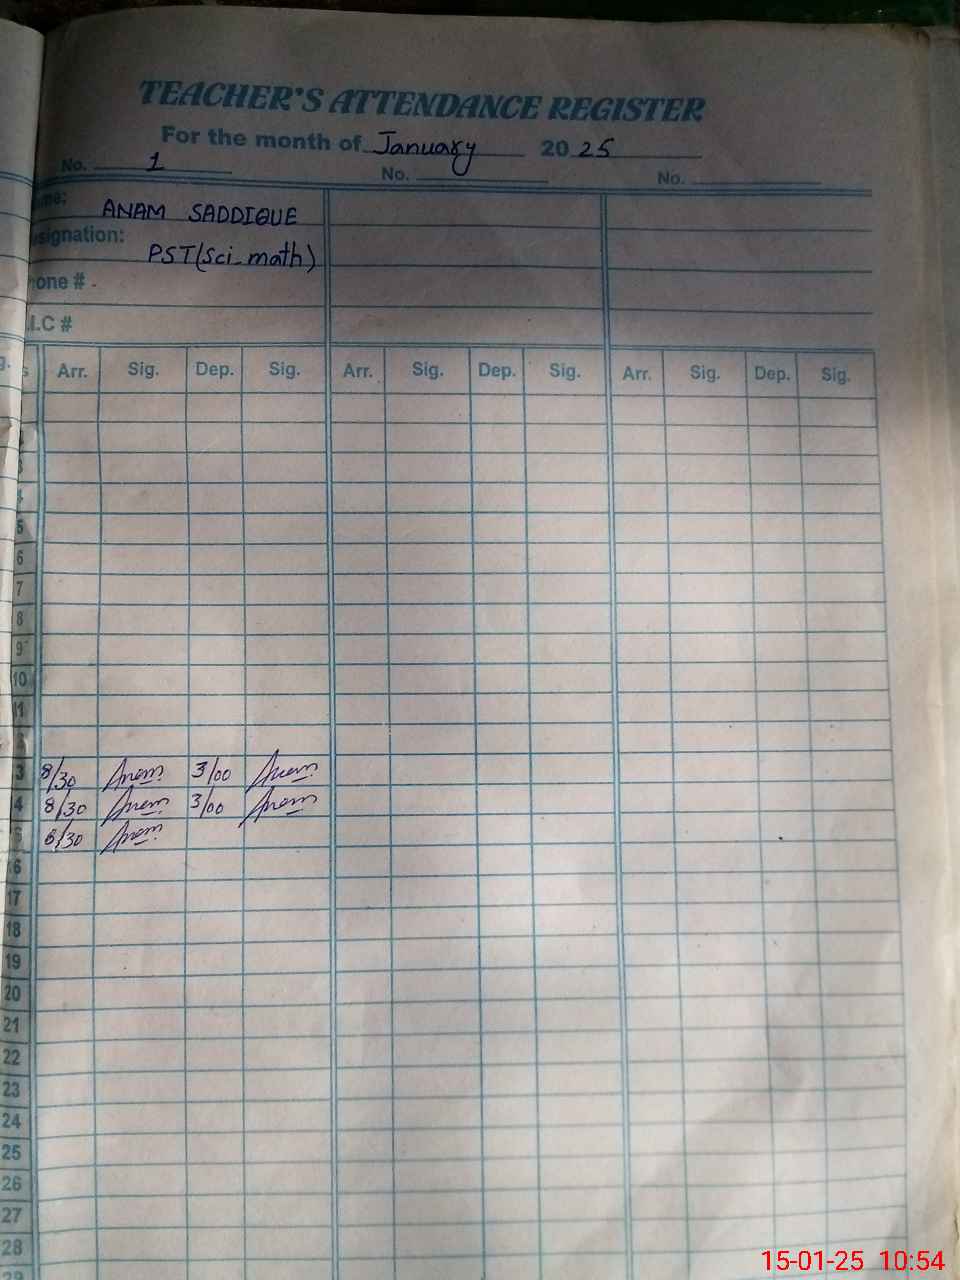 TEACHER'S ATTENDANCE REGISTER
For the month of January 20 25
No. 1 No. No.
me: ANAM SADDIQUE
signation: PST(Sci_math)
one # -
.I.C #
g. s Arr. Sig. Dep. Sig. Arr. Sig. Dep. Sig. Arr. Sig. Dep. Sig.
3
4
5
6
7
8
9
10
11
3 8/30 Anam 3/00 Anam
4 8/30 Anam 3/00 Anam
5 8/30 Anam
16
17
18
19
20
21
22
23
24
25
26
27
28
29
15-01-25 10:54